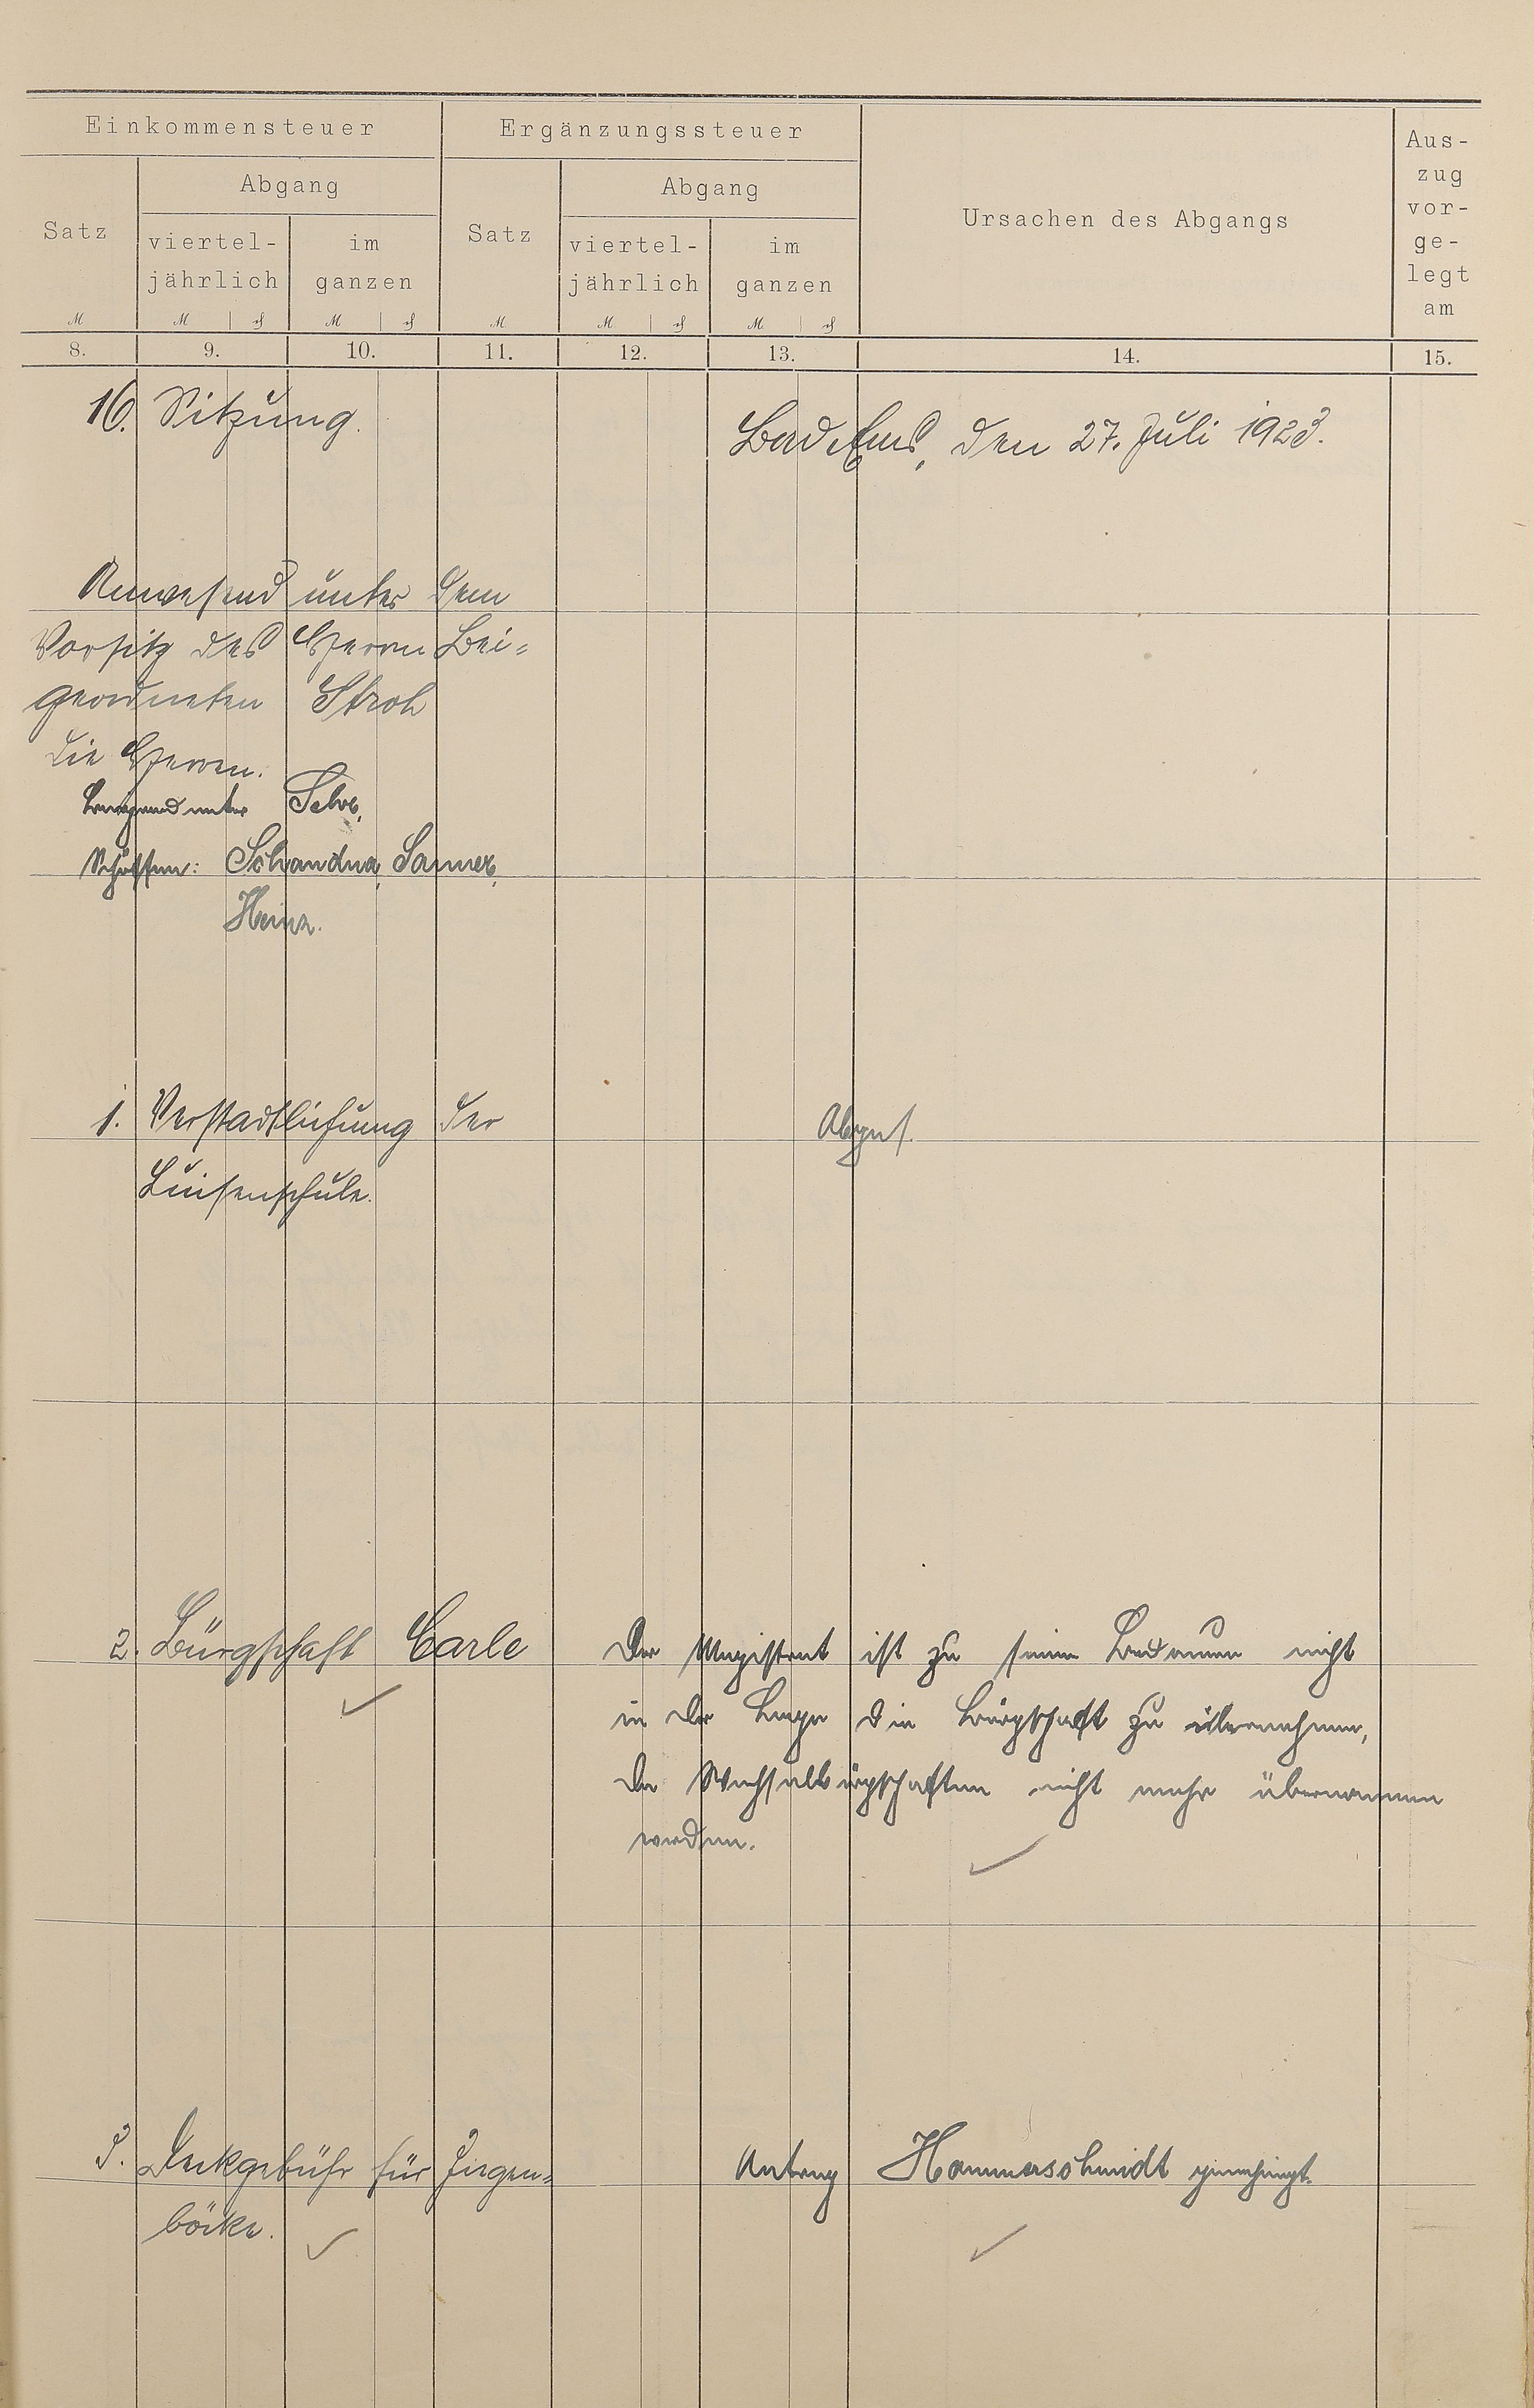 Einkommensteuer
Ergänzungssteuer
Ursachen des Abgangs
Aus-
zug
vor-
ge-
legt
am
Satz
Abgang
viertel-
jährlich
im
ganzen
Satz
Abgang
viertel-
jährlich
im
ganzen
M
M
M
M
M
M
8. 9. 10. 11. 12. 13. 14. 15.
16. Sitzung.
Bad Ems, den 27. Juli 1923.
Anwesend unter dem
Vorsitz des Herrn Bei-
geordneten Stroh
die Herren.
Selve,
Schöffen: Schandua, Sanner,
Heinz.
1. Verstadtlichung der
Luisenschule.
Abges.
2. Bürgschaft Carle
Der Magistrat ist zu seinem Bedauern nicht
in der Lage die Bürgschaft zu übernehmen,
da Wechselbürgschaften nicht mehr übernommen
werden.
3. Deckgebühr für Ziegen-
böcke.
Antrag Hammerschmidt genehmigt.